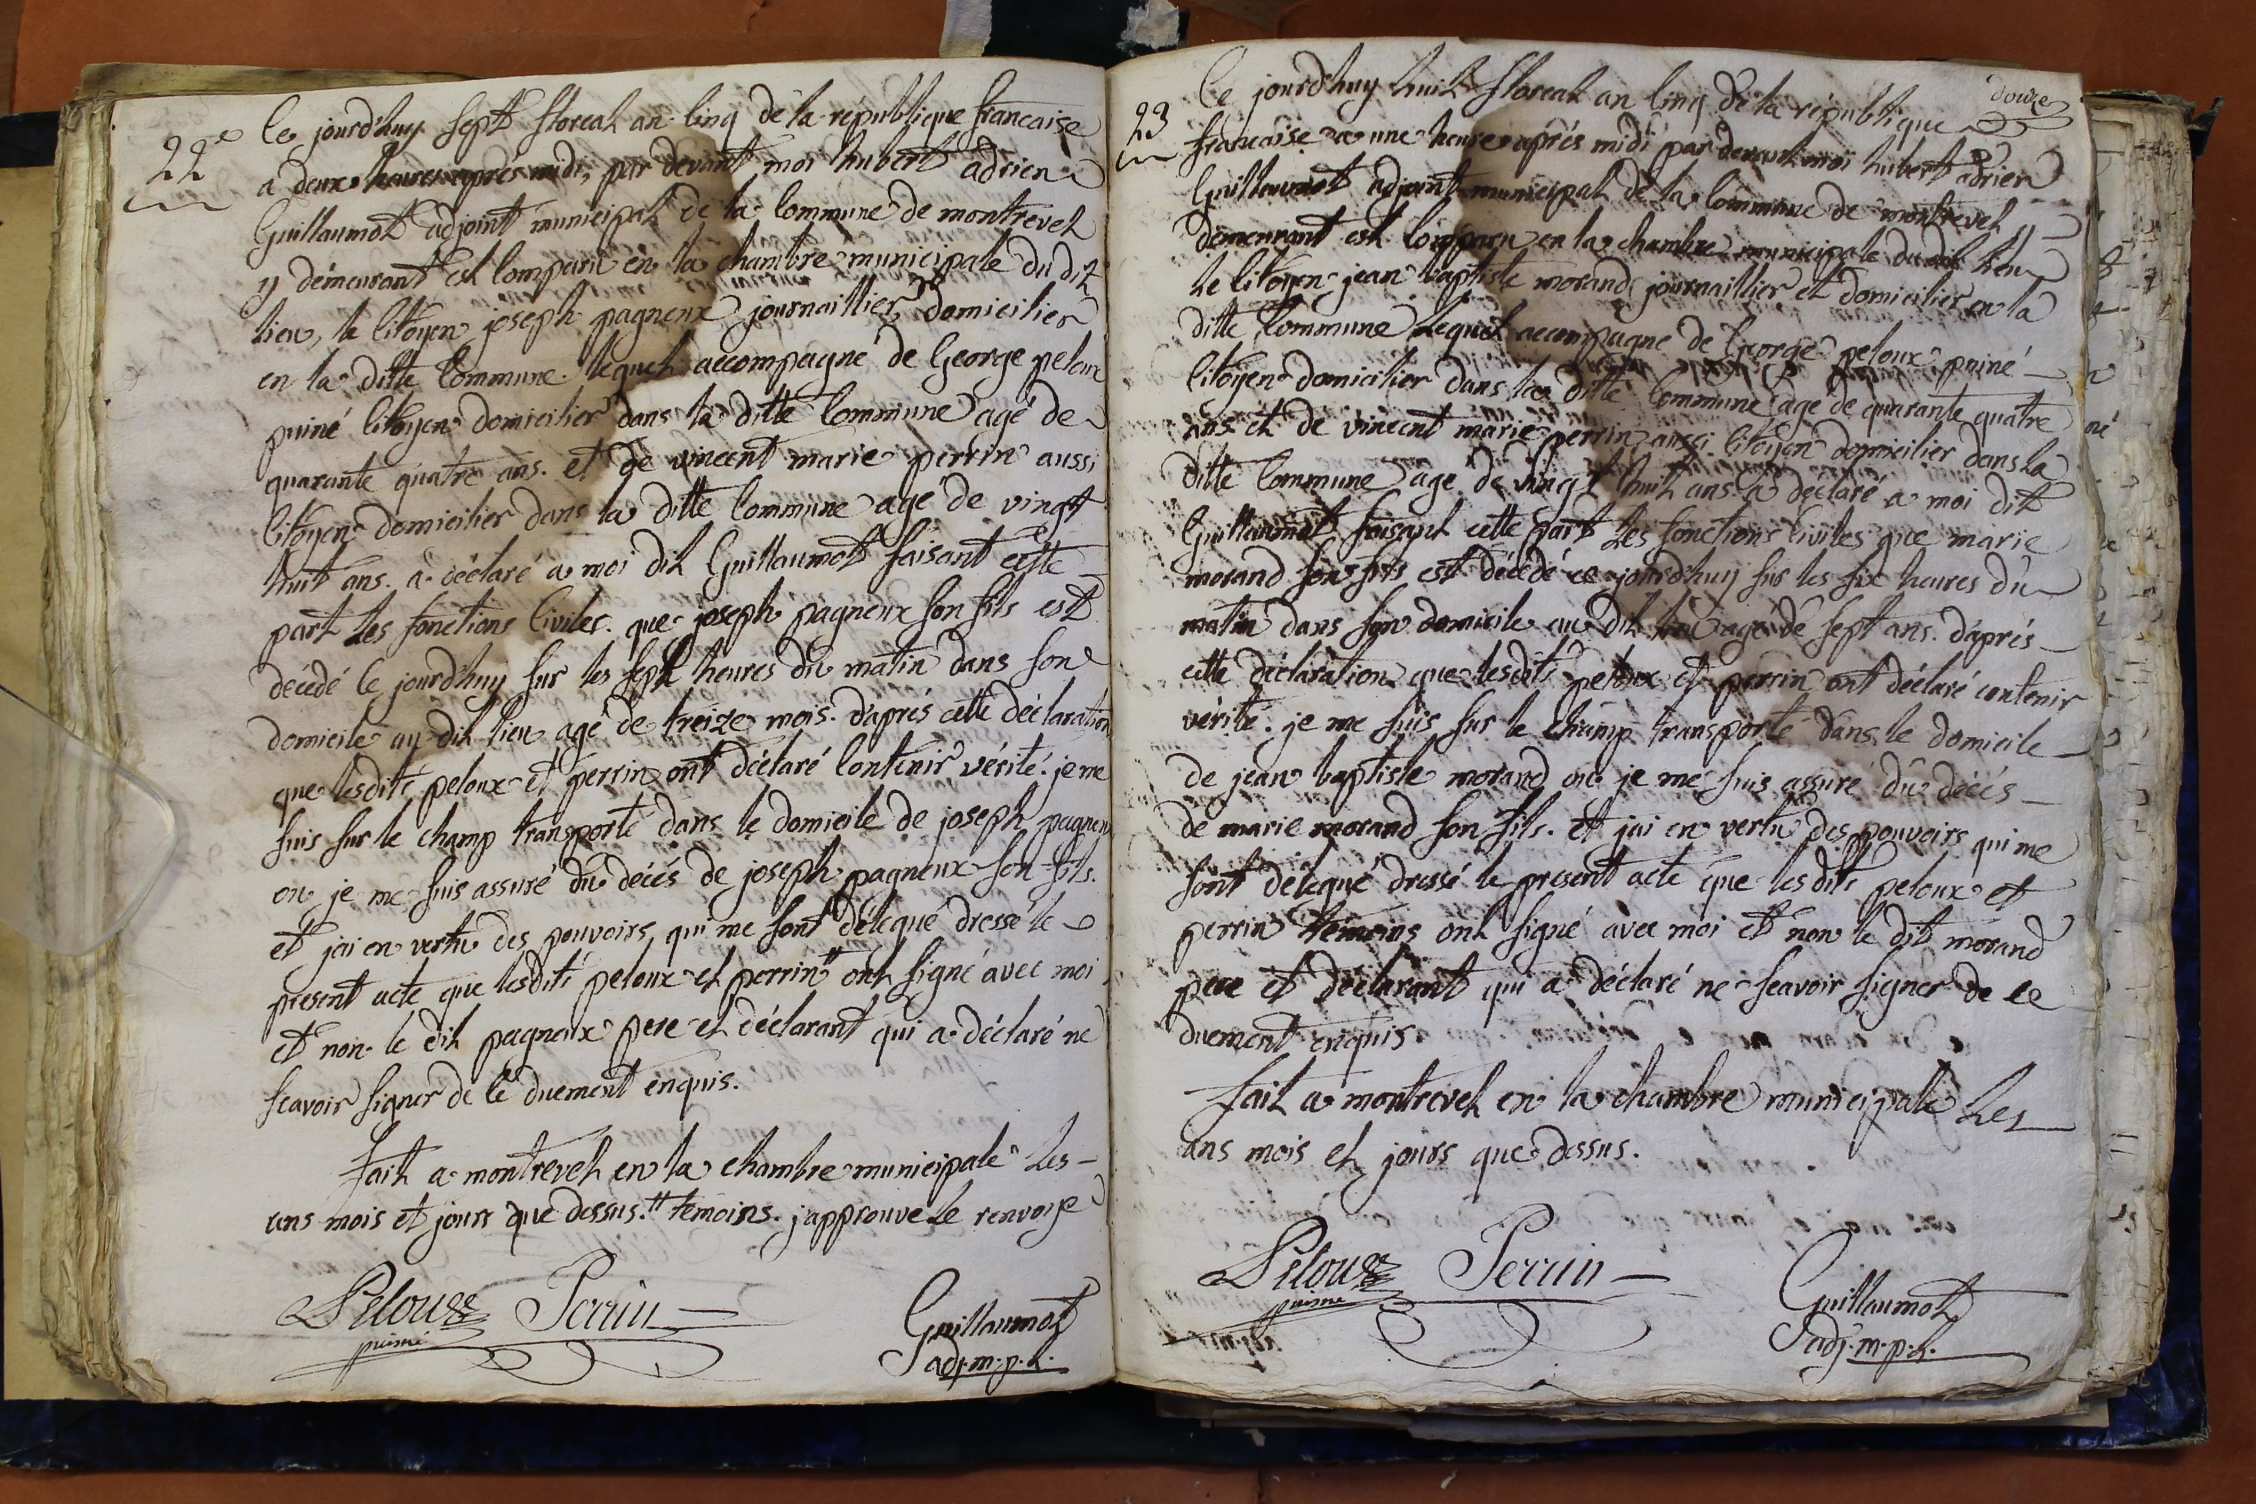 22e
Ce jourd'huy sept floreal an cinq de la republique francaise
a deux heures aprés midi, par devant moi hubert adrien
Guillaumot adjoint municipal de la Commune de montrevel
y démeurant est Comparu en la chambre municipale du dit
lieu, le Citoyen joseph pagneux journaillier domicilier
en la ditte Commune lequel accompagné de George peloux
puiné Citoyen domicilier dans la ditte Commune agé de
quarante quatre ans. et de vincent marie perrin aussi
Citoyen domicilier dans la ditte Commune agé de vingt
huit ans. a déclaré a moi dit Guillaumot faisant cette
part les fonctions Civiles. que joseph pagneux son fils est
décédé ce jourd'huy sur les sept heures du matin dans son
domicile au dit lieu agé de treize mois. d'aprés cette déclaration
que lesdits peloux et perrin ont déclaré Contenir vérité. je me
suis sur le champ transporté dans le domicile de joseph pagneux
ou je me suis assuré du décés de joseph pagneux son fils.
et jai en vertu des pouvoirs qui me sont délequé dressé le
present acte que lesdits peloux et perrin" ont signé avec moi
et non le dit pagneux pere et déclarant qui a déclaré ne
scavoir signer de ce duement enquis.
fait a montrevel en la chambre municipale les
ans mois et jours que dessus." témoins. japprouve le renvoye
Peloux Perrin Guillaumot
puiné adj. m. p. l.
douze
23
Ce jourd'huy huit floreal an cinq de la république
francaise a une heure aprés midi par devant moi hubert adrien
Guillaumot adjoint municipal de la Commune de montrevel y
démeurant est Comparu en la chambre municipale du dit lieu
le Citoyen jean baptiste morand journaillier et domicilier en la
ditte Commune lequel accompagné de George peloux puiné
Citoyen domicilier dans la ditte Commune agé de quarante quatre
ans et de vincent marie perrin aussi Citoyen domicilier dans la
ditte Commune agé de vingt huit ans a déclaré a moi dit
Guillaumot faisant cette part les fonctions Civiles que marie
morand son fils est décédé ce jourd'huy sur les six heures du
matin dans son domicile au dit lieu agé de sept ans. d'aprés
cette déclaration que lesdits peloux et perrin ont déclaré contenir
vérité. je me suis sur le champ transporté dans le domicile
de jean baptiste morand ou je me suis assuré du décés
de marie morand son fils. et jai en vertu des pouvoirs qui me
sont délequé dressé le present acte que lesdits peloux et
perrin témoins ont signé avec moi et non le dit morand
pere et déclarant qui a déclaré ne scavoir signer de ce
duement enquis
fait a montrevel en la chambre municipale les
ans mois et jours que dessus.
Peloux Perrin Guillaumot
puiné adj. m. p. l.